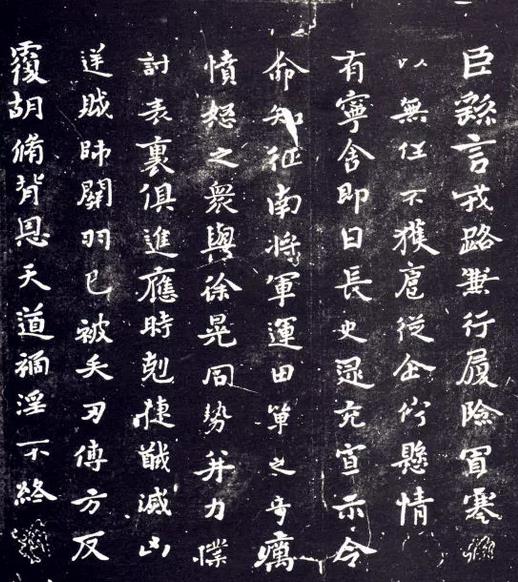 臣繇言戎路兼行履險冒寒
以無任不獲扈從企佇懸情
有寧舍即日長史逯充宣示令
命知征南將軍運田單之奇厲
憤怒之眾與徐晃同勢并力撲
討表裏俱進應時剋捷馘滅凶
逆賊帥關羽已被矢刃傅方反
覆胡脩背恩天道禍淫不終